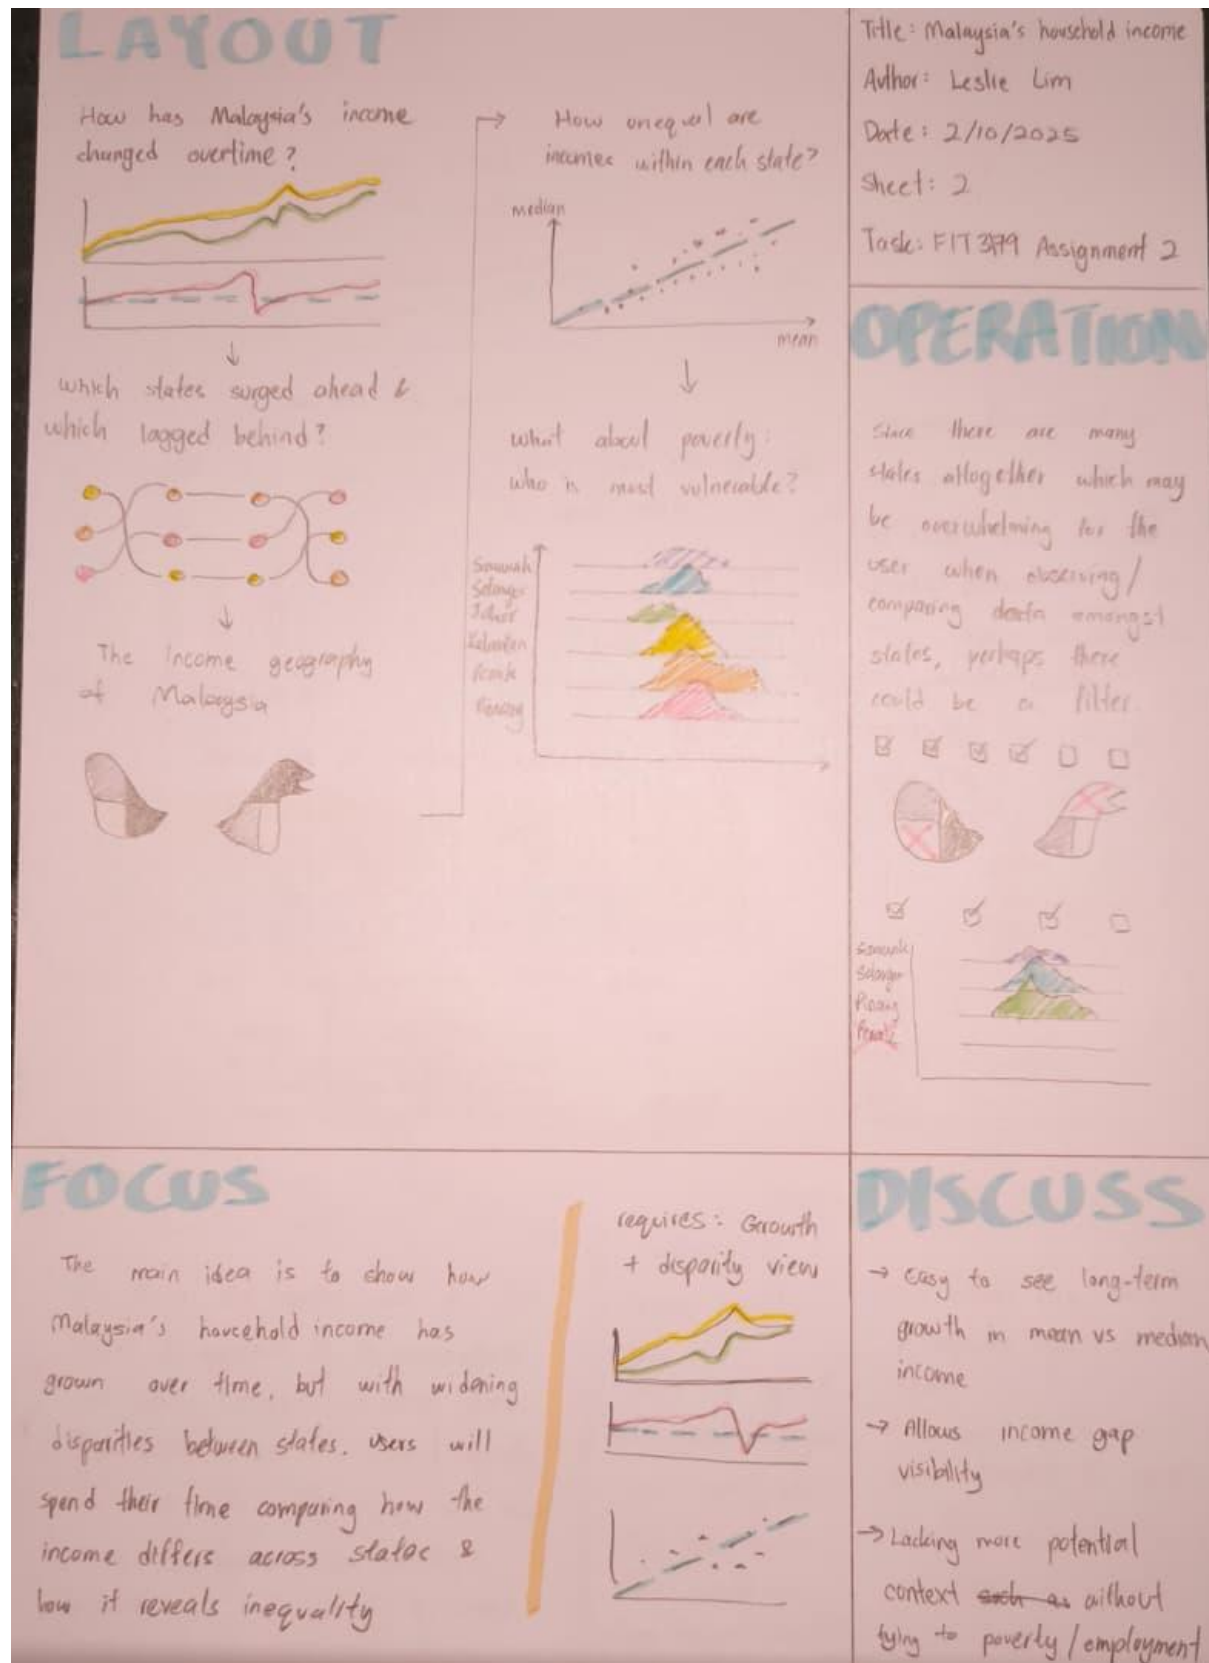 LAYOUT
How has Malaysia's income
changed overtime?
which states surged ahead &
which lagged behind?
The Income geography
of Malaysia
How unequal are
incomes within each state?
median
mean
what about poverty:
who is most vulnerable?
Sarawak
Selangor
Johor
Kelantan
Perak
Penang
Title: Malaysia's household income
Author: Leslie Lim
Date: 2/10/2025
Sheet: 2
Task: FIT3179 Assignment 2
OPERATION
Since there are many
states altogether which may
be overwhelming for the
user when observing/
comparing data amongst
states, perhaps there
could be a filter.
Sarawak
Selangor
Pinang
Perak
FOCUS
The main idea is to show how
Malaysia's household income has
grown over time, but with widening
disparities between states. users will
spend their time comparing how the
income differs across states &
how it reveals inequality
requires: Growth
+ disparity view
DISCUSS
→ Easy to see long-term
growth in mean vs median
income
→ Allows income gap
visibility
→ Lacking more potential
context such as without
tying to poverty/employment